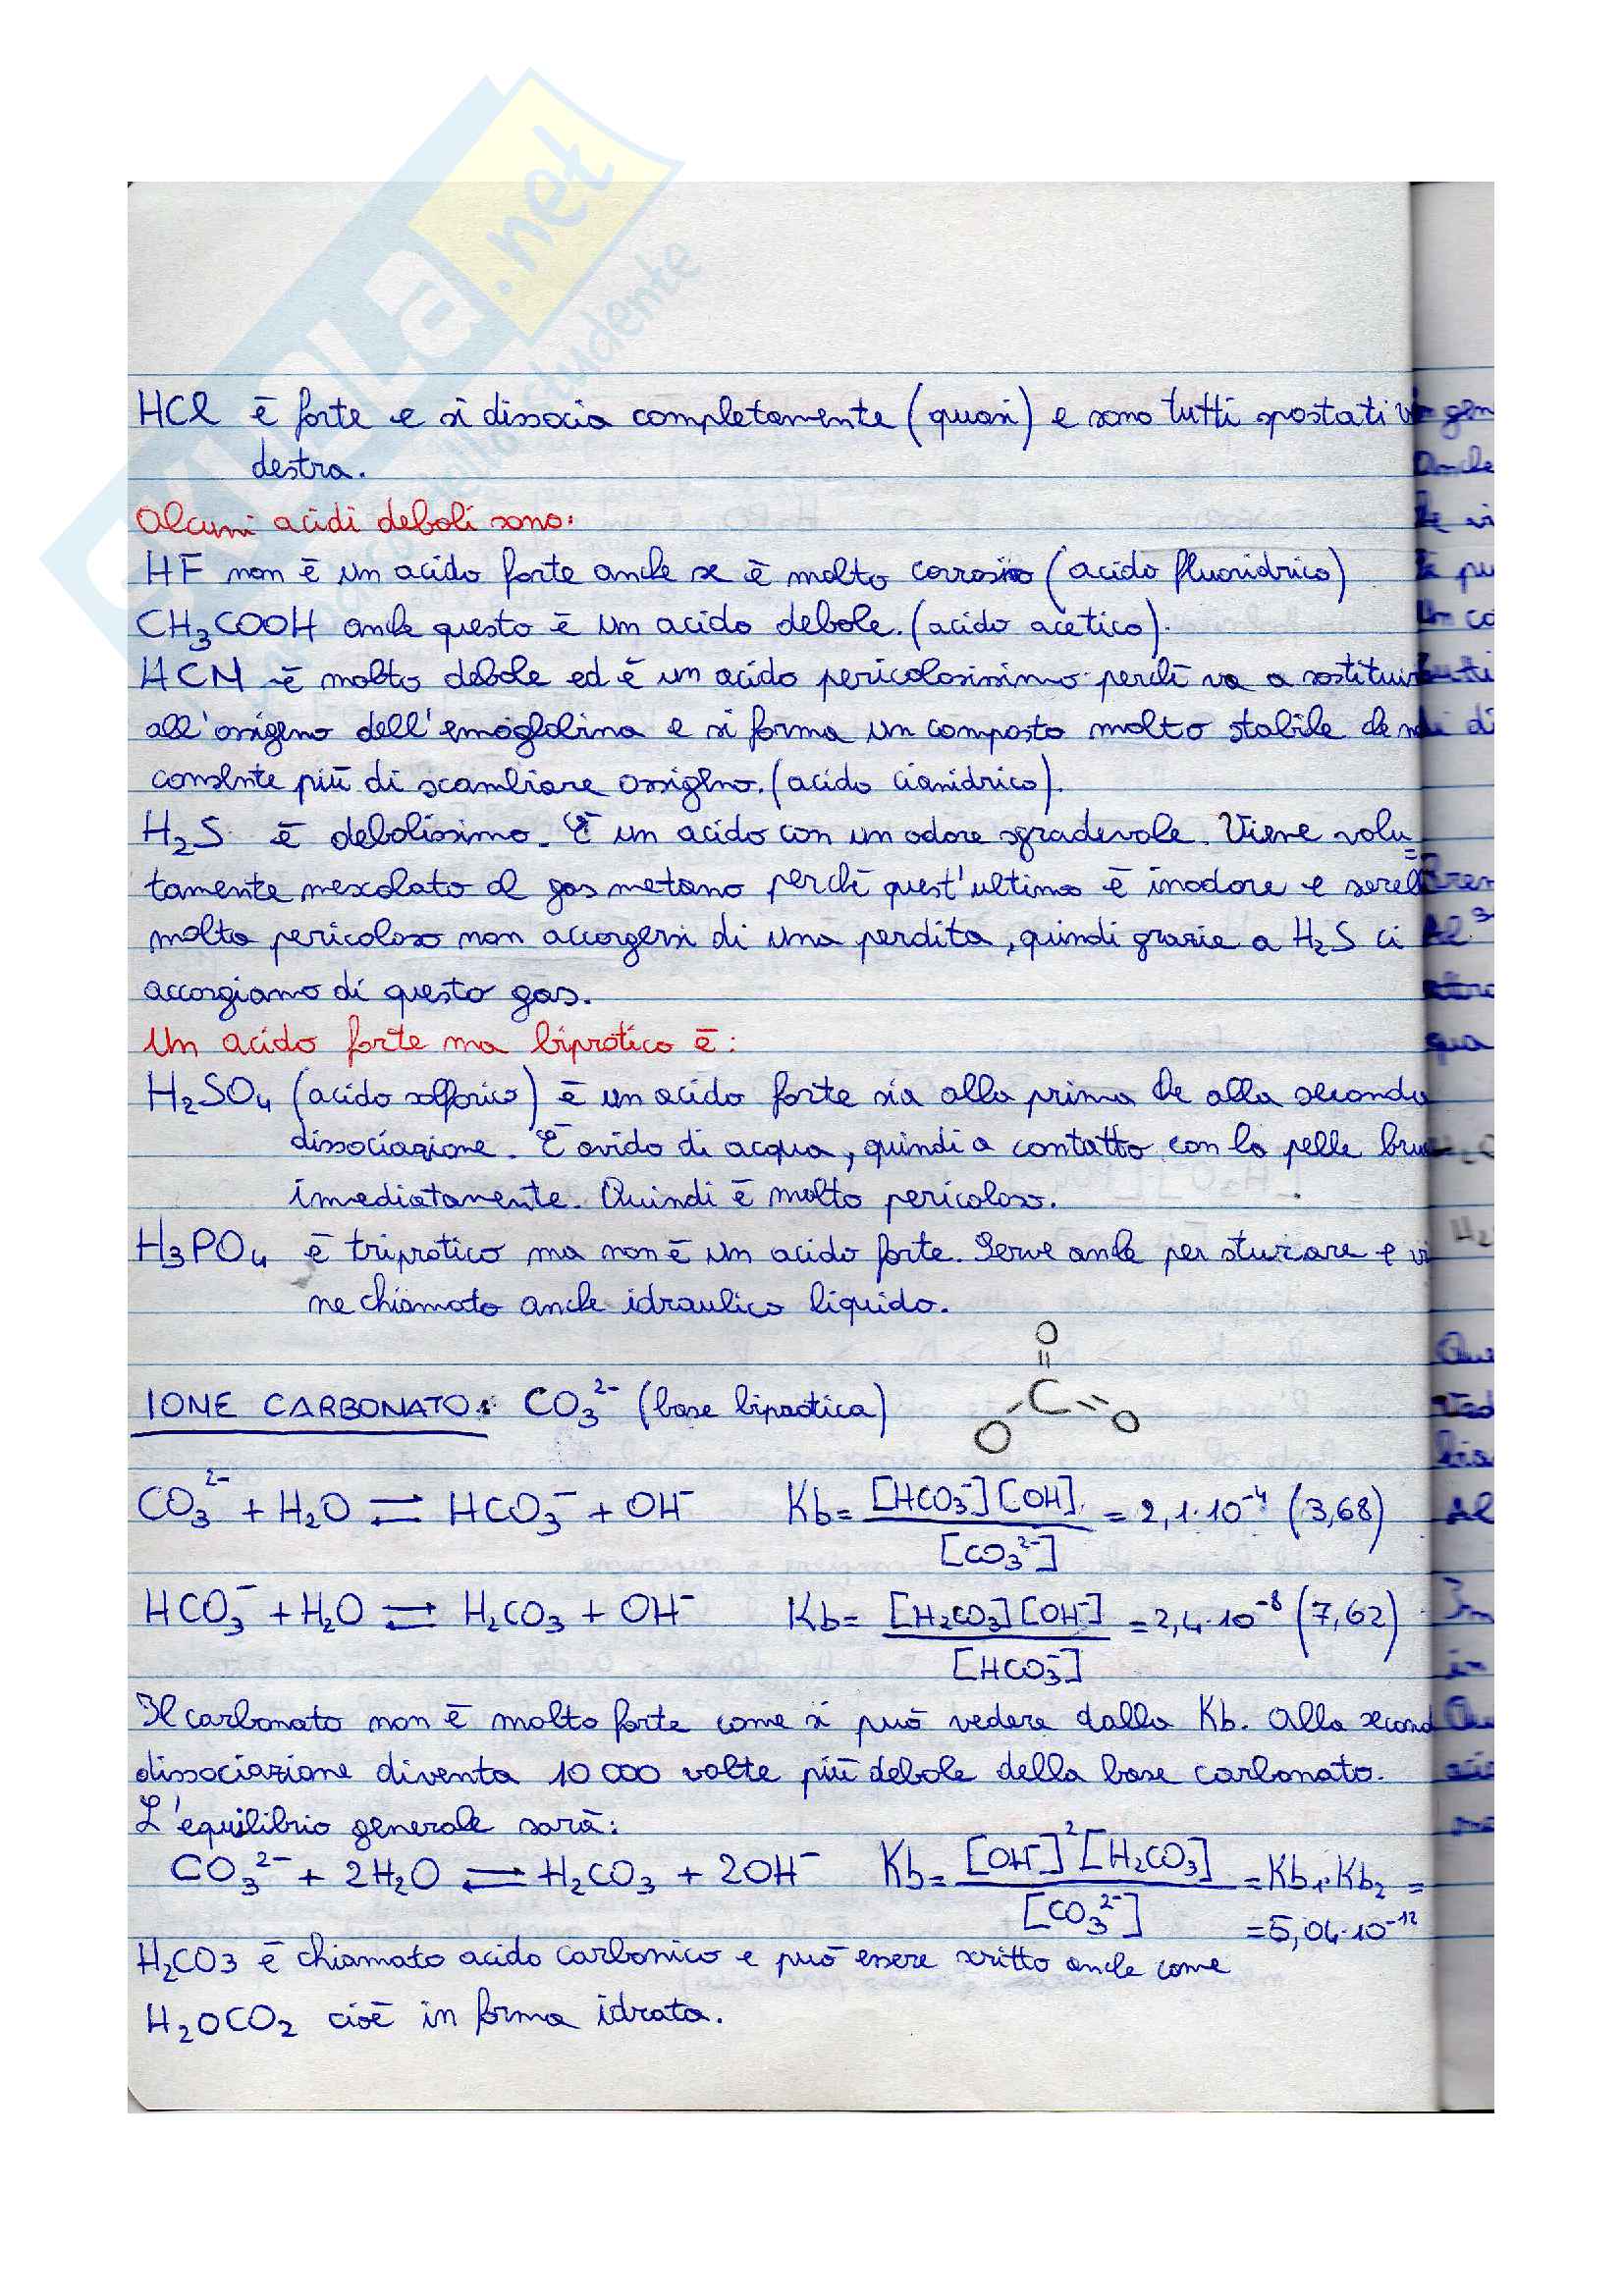 SKUOLA.net
HCl è forte e si dissocia completamente (quasi) e sono tutti spostati
destra.
Alcuni acidi deboli sono:
HF non è un acido forte anche se è molto corrosivo (acido fluoridrico)
CH₃COOH anche questo è un acido debole. (acido acetico).
HCN è molto debole ed è un acido pericolosissimo perchè va a sostituirsi
all'ossigeno dell'emoglobina e si forma un composto molto stabile che non
consente più di scambiare ossigeno. (acido cianidrico).
H₂S è debolissimo. È un acido con un odore sgradevole. Viene volu=
tamente mescolato al gas metano perchè quest'ultimo è inodore e sarebbe
molto pericoloso non accorgersi di una perdita, quindi grazie a H₂S ci
accorgiamo di questo gas.
Un acido forte ma biprotico è:
H₂SO₄ (acido solforico) è un acido forte sia alla prima che alla seconda
dissociazione. È avido di acqua, quindi a contatto con la pelle
imediatamente. Quindi è molto pericoloso.
H₃PO₄ è triprotico ma non è un acido forte. Serve anche per sturare e vi
ne chiamato anche idraulico liquido.
O
IONE CARBONATO: CO₃²⁻ (base biprotica) C
O O
CO₃²⁻ + H₂O ⇌ HCO₃⁻ + OH⁻ Kb = [HCO₃⁻][OH] / [CO₃²⁻] = 2,1·10⁻⁴ (3,68)
HCO₃⁻ + H₂O ⇌ H₂CO₃ + OH⁻ Kb = [H₂CO₃][OH⁻] / [HCO₃⁻] = 2,4·10⁻⁸ (7,62)
Il carbonato non è molto forte come si può vedere dalla Kb. Alla second
dissociazione diventa 10 000 volte più debole della base carbonato.
L'equilibrio generale sarà:
CO₃²⁻ + 2H₂O ⇌ H₂CO₃ + 2OH⁻ Kb = [OH⁻]²[H₂CO₃] / [CO₃²⁻] = Kb₁·Kb₂ =
= 5,04·10⁻¹²
H₂CO3 è chiamato acido carbonico e può essere scritto anche come
H₂OCO₂ cioè in forma idrata.